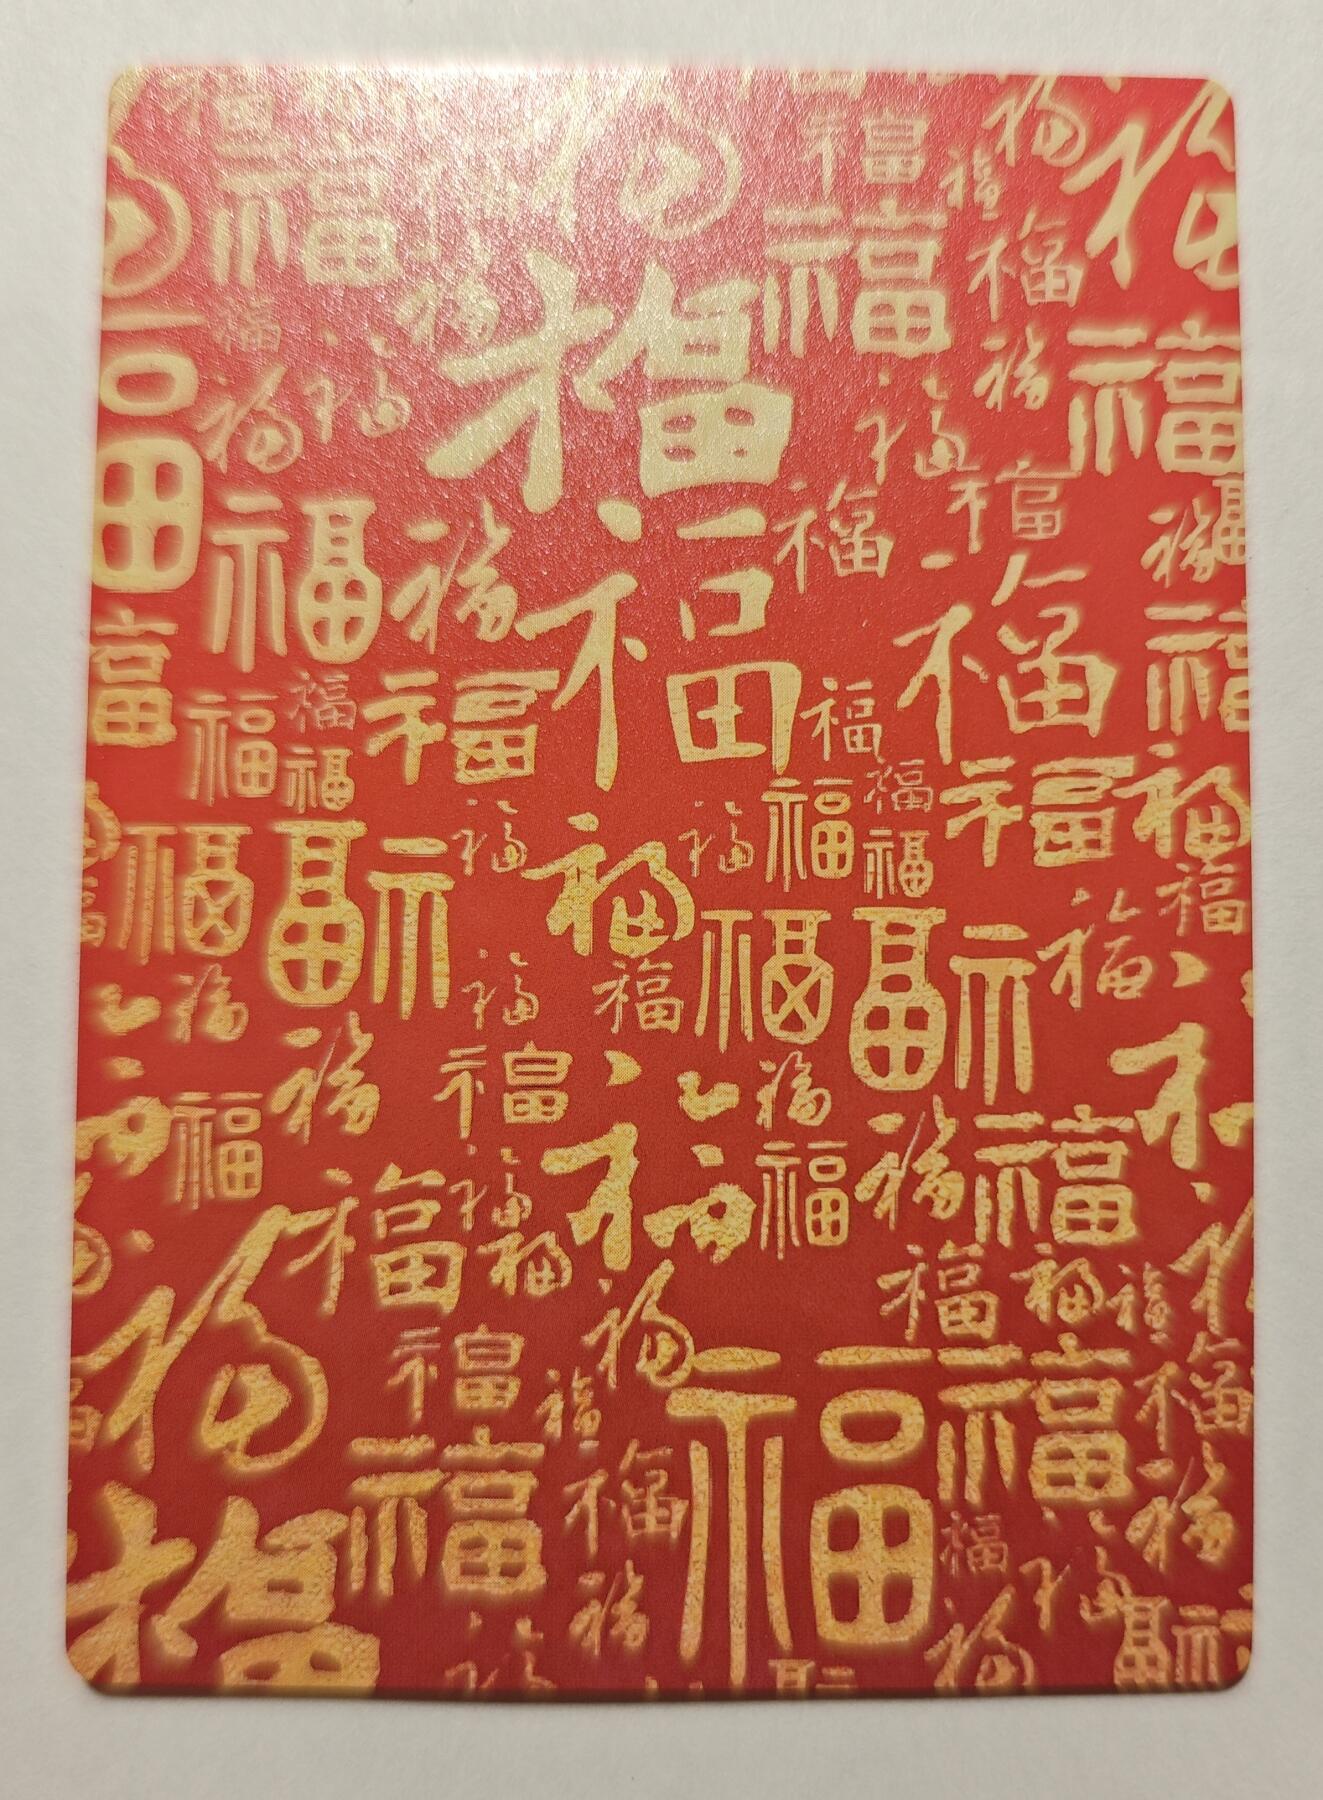 福 福 福 福 福 福 福 福
福 福 福 福 福
福 福 福 福 福
福 福 福 福 福
福 福 福 福 福
福 福 福 福 福 福
福 福 福 福 福 福
福 福 福 福 福 福
福 福 福 福 福
福 福 福 福 福
福 福 福 福 福 福
福 福 福 福 福
福 福 福 福 福
福 福 福 福 福
福 福 福 福